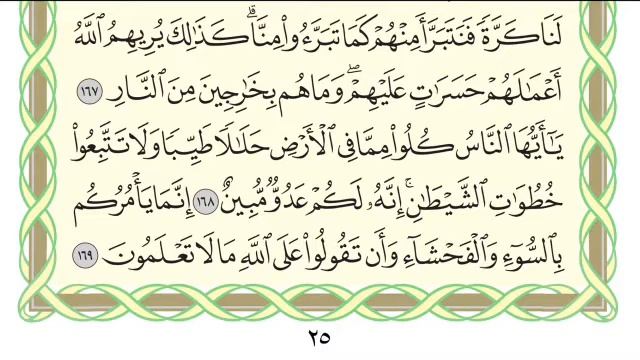 لَنَا كَرَّةً فَنَتَبَرَّأَ مِنْهُمْ كَمَا تَبَرَّءُوا۟ مِنَّا ۗ كَذَٰلِكَ يُرِيهِمُ ٱللَّهُ
أَعْمَـٰلَهُمْ حَسَرَٰتٍ عَلَيْهِمْ ۖ وَمَا هُم بِخَـٰرِجِينَ مِنَ ٱلنَّارِ ١٦٧
يَـٰٓأَيُّهَا ٱلنَّاسُ كُلُوا۟ مِمَّا فِى ٱلْأَرْضِ حَلَـٰلًا طَيِّبًا وَلَا تَتَّبِعُوا۟
خُطُوَٰتِ ٱلشَّيْطَـٰنِ ۚ إِنَّهُۥ لَكُمْ عَدُوٌّ مُّبِينٌ ١٦٨ إِنَّمَا يَأْمُرُكُم
بِٱلسُّوٓءِ وَٱلْفَحْشَآءِ وَأَن تَقُولُوا۟ عَلَى ٱللَّهِ مَا لَا تَعْلَمُونَ ١٦٩
٢٥